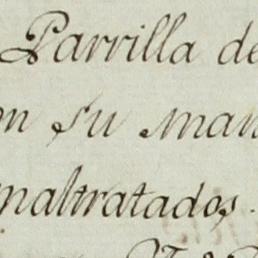 Parrilla de
on su man
maltratados.